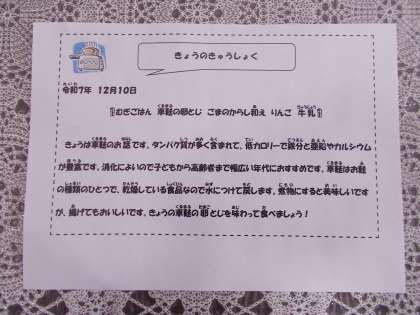 きょうのきゅうしょく
令和7年 12月10日
むぎごはん 車麩の卵とじ ごまのからし和え りんご 牛乳
きょうは車麩のお話です。タンパク質が多く含まれて、低カロリーで鉄分と亜鉛やカルシウム
が豊富です。消化によいので子どもから高齢者まで幅広い年代におすすめです。車麩はお麩
の種類のひとつで、乾燥している食品なので水につけて戻します。煮物にすると美味しいです
が、揚げてもおいしいです。きょうの車麩の卵とじを味わって食べましょう！